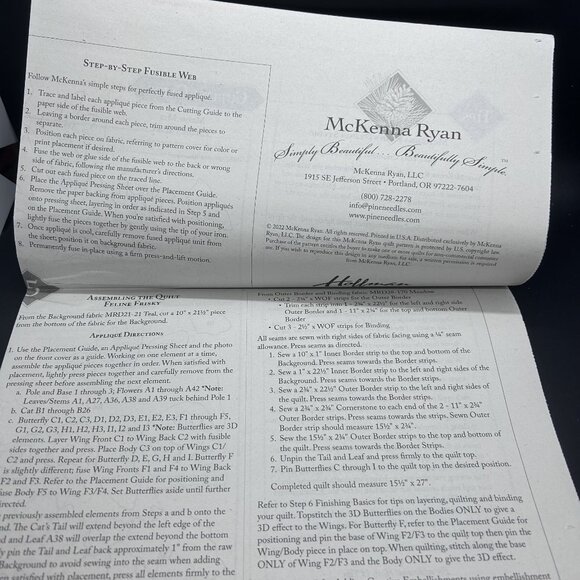 STEP-BY-STEP FUSIBLE WEB
Follow McKenna's simple steps for perfectly fused appliqué.
1. Trace and label each appliqué piece from the Cutting Guide to the
paper side of the fusible web.
2. Leaving a border around each piece, trim around the pieces to
separate.
3. Position each piece on fabric, referring to pattern cover for color or
print placement if desired.
4. Fuse the web or glue side of the fusible web to the back or wrong
side of fabric, following the manufacturer's directions.
5. Cut out each fused piece on the traced line.
6. Place the Appliqué Pressing Sheet over the Placement Guide.
Remove the paper backing from appliqué pieces. Position appliqués
onto pressing sheet, layering in order as indicated in Step 5 and
on the Placement Guide. When you're satisfied with positioning,
lightly fuse the pieces together by gently using the tip of your iron.
7. Once appliqué is cool, carefully remove fused appliqué unit from
the sheet; position it on background fabric.
8. Permanently fuse in place using a firm press-and-lift motion.
McKenna Ryan
Simply Beautiful... Beautifully Simple.™
McKenna Ryan, LLC
1915 SE Jefferson Street • Portland, OR 97222-7604
(800) 728-2278
info@pineneedles.com
www.pineneedles.com
© 2022 McKenna Ryan. All rights reserved. Printed in U.S.A. Distributed exclusively by McKenna
Ryan, LLC. The design for this McKenna Ryan quilt pattern is protected by U.S. copyright law.
Purchase of the pattern entitles the buyer to make one or more quilts for non-commercial
use. If you wish to reproduce this design in any medium for sale, a written permission is required
from McKenna Ryan, LLC.
Hoffman
5
ASSEMBLING THE QUILT
FELINE FRISKY
From the Background fabric MRD21-21 Teal, cut a 10" x 21½" piece
from the bottom of the fabric for the Background.
APPLIQUÉ DIRECTIONS
1. Use the Placement Guide, an Appliqué Pressing Sheet and the photo
on the front cover as a guide. Working on one element at a time,
assemble the appliqué pieces together in order. When satisfied with
placement, lightly press pieces together and carefully remove from the
pressing sheet before assembling the next element.
a. Pole and Base 1 through 3; Flowers A1 through A42 *Note:
Leaves/Stems A1, A27, A36, A38 and A39 tuck behind Pole 1
b. Cat B1 through B26
c. Butterfly C1, C2, C3, D1, D2, D3, E1, E2, E3, F1 through F5,
G1, G2, G3, H1, H2, H3, I1, I2 and I3 *Note: Butterflies are 3D
elements. Layer Wing Front C1 to Wing Back C2 with fusible
sides together and press. Place Body C3 on top of Wings C1/
C2 and press. Repeat for Butterfly D, E, G, H and I. Butterfly
F is slightly different; fuse Wing Fronts F1 and F4 to Wing Back
F2 and F3. Refer to the Placement Guide for positioning and
fuse Body F5 to Wing F3/F4. Set Butterflies aside until further
directed.
previously assembled elements from Steps a and b onto the
The Cat's Tail will extend beyond the left edge of the
and Leaf A38 will overlap the extend beyond the bottom
pin the Tail and Leaf back approximately 1" from the raw
Background to avoid sewing into the seam when adding
satisfied with placement, press all elements firmly to the
From Outer Border and Binding fabric
• Cut 2 - 2¾" x WOF strips for the Outer Border
• Trim each strip into 1 - 2¾" x 22½" for the left and right
Outer Border and 1 - 11" x 2¾" for the top and bottom Outer
Border
• Cut 3 - 2½" x WOF strips for Binding
All seams are sewn with right sides of fabric facing using a ¼" seam
allowance. Press seams as directed.
1. Sew a 10" x 1" Inner Border strip to the top and bottom of the
Background. Press seams towards the Border strips.
2. Sew a 1" x 22½" Inner Border strip to the left and right sides of
the Background. Press seams towards the Border strips.
3. Sew a 2¾" x 22½" Outer Border strip to the left and right sides of
the quilt. Press seams towards the Border strips.
4. Sew a 2¾" x 2¾" Cornerstone to each end of the 2 - 11" x 2¾"
Outer Border strips. Press seams towards the strips. Sewn Outer
Border strip should measure 15½" x 2¾".
5. Sew the 15½" x 2¾" Outer Border strips to the top and bottom of
the quilt. Press seams towards the Border strips.
6. Unpin the Tail and Leaf and press firmly to the quilt top.
7. Pin Butterflies C through I to the quilt top in the desired position.
Completed quilt should measure 15½" x 27".
Refer to Step 6 Finishing Basics for tips on layering, quilting and binding
your quilt. Topstitch the 3D Butterflies on the Bodies ONLY to give a
3D effect to the Wings. For Butterfly F, refer to the Placement Guide for
positioning and pin the base of Wing F2/F3 to the quilt top then pin the
Wing/Body piece in place on top. When quilting, stitch along the base
ONLY of Wing F2/F3 and the Body ONLY to give the 3D effect.